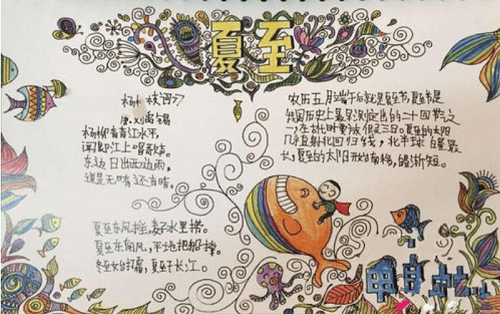 夏至
杨枝词
唐.刘禹锡
杨柳青青江水平，
闻郎江上唱歌声。
东边日出西边雨，
道是无晴还有晴。
夏至东风摇，麦子水里捞。
夏至东南风，平地把船撑。
冬至始打霜，夏至干长江。
农历五月端午后就是夏至节，夏至节是
我国历史上最早测定出的二十四节之
一，在古时要放假三日。夏至的太阳
几乎直射北回归线，北半球的昼最
长，夏至的太阳开始南移，昼渐短。